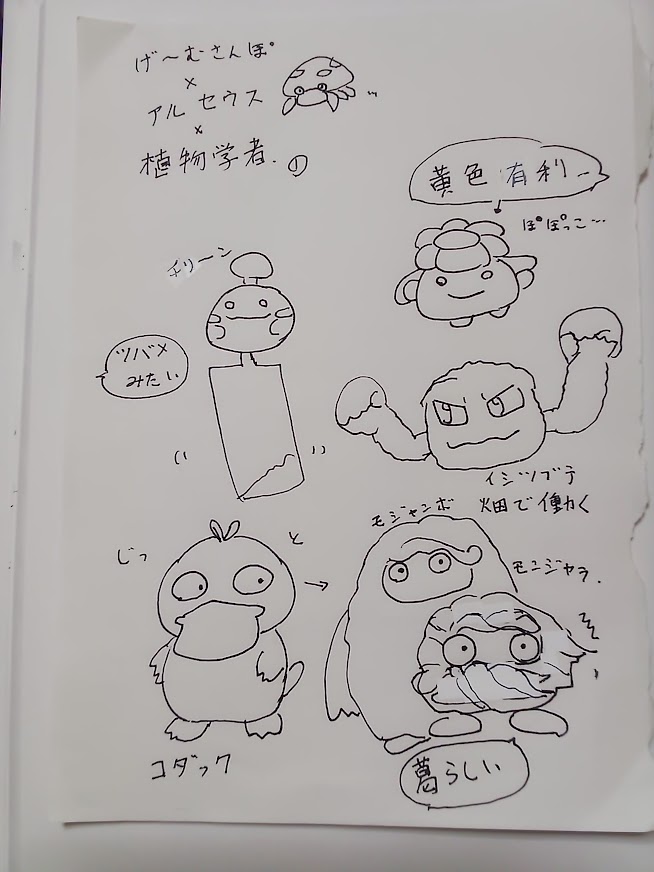 げ〜むさんぽ
×
アルセウス
×
植物学者の
黄色有利
ぽぽっこ…
チリーン
ツバメ
みたい
イシツブテ
畑で働く
モジャンボ
モンジャラ.
じっ
と
→
コダック
葛らしい